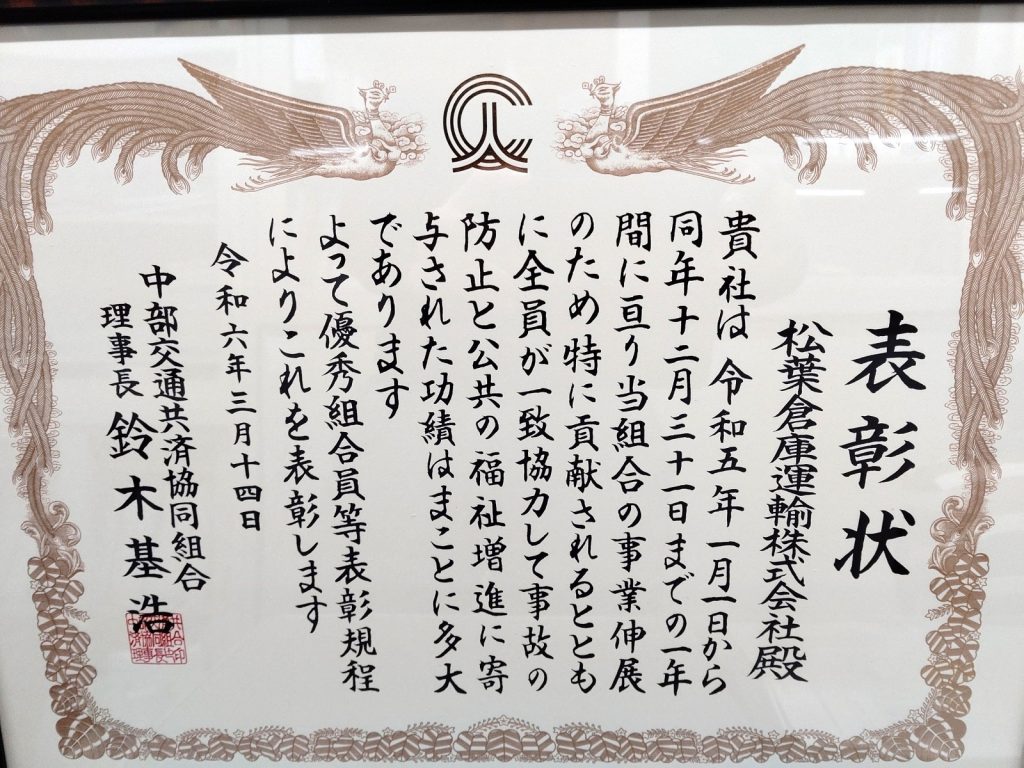 表彰状
松葉倉庫運輸株式会社殿
貴社は 令和五年一月一日から
同年十二月三十一日までの一年
間に亘り当組合の事業伸展
のため特に貢献されるととも
に全員が一致協力して事故の
防止と公共の福祉増進に寄
与された功績はまことに多大
であります
よって優秀組合員等表彰規程
によりこれを表彰します
令和六年三月十四日
中部交通共済協同組合
理事長 鈴木基浩